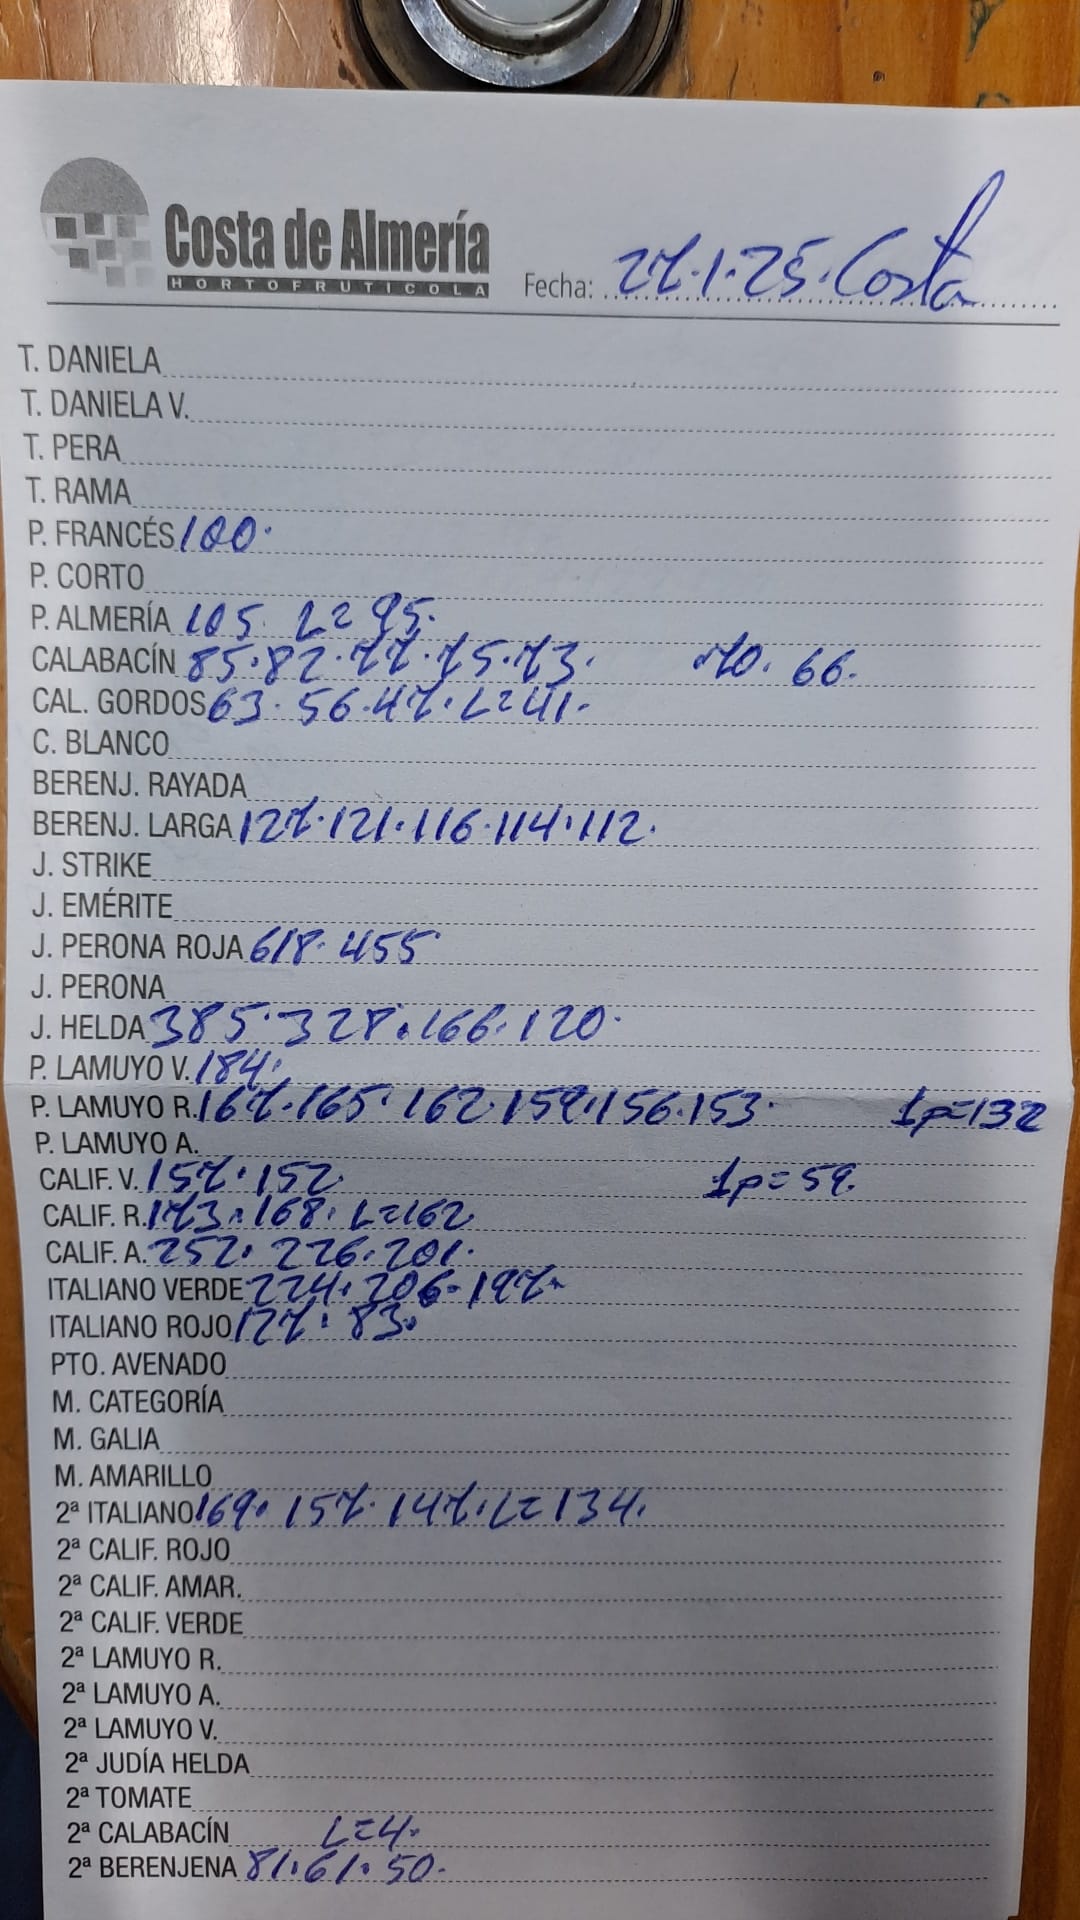 Costa de Almería
HORTOFRUTICOLA
Fecha: 27.1.25. Costa
T. DANIELA
T. DANIELA V.
T. PERA
T. RAMA
P. FRANCÉS 100.
P. CORTO
P. ALMERÍA 105 L=95.
CALABACÍN 85.82.77.75.73. 70. 66.
CAL. GORDOS 63. 56.47.L=41.
C. BLANCO
BERENJ. RAYADA
BERENJ. LARGA 127.121.116.114.112.
J. STRIKE
J. EMÉRITE
J. PERONA ROJA 618. 455
J. PERONA
J. HELDA 385. 328.166.120.
P. LAMUYO V. 184.
P. LAMUYO R. 167.165.162.159.156.153. 1p=132
P. LAMUYO A.
CALIF. V. 157.152. 1p=59.
CALIF. R. 173.168. L=162
CALIF. A. 252. 226.201.
ITALIANO VERDE 224. 206.197.
ITALIANO ROJO 127. 83.
PTO. AVENADO
M. CATEGORÍA
M. GALIA
M. AMARILLO
2ª ITALIANO 169. 157. 147.L=134.
2ª CALIF. ROJO
2ª CALIF. AMAR.
2ª CALIF. VERDE
2ª LAMUYO R.
2ª LAMUYO A.
2ª LAMUYO V.
2ª JUDÍA HELDA
2ª TOMATE
2ª CALABACÍN L=4.
2ª BERENJENA 81.61.50.